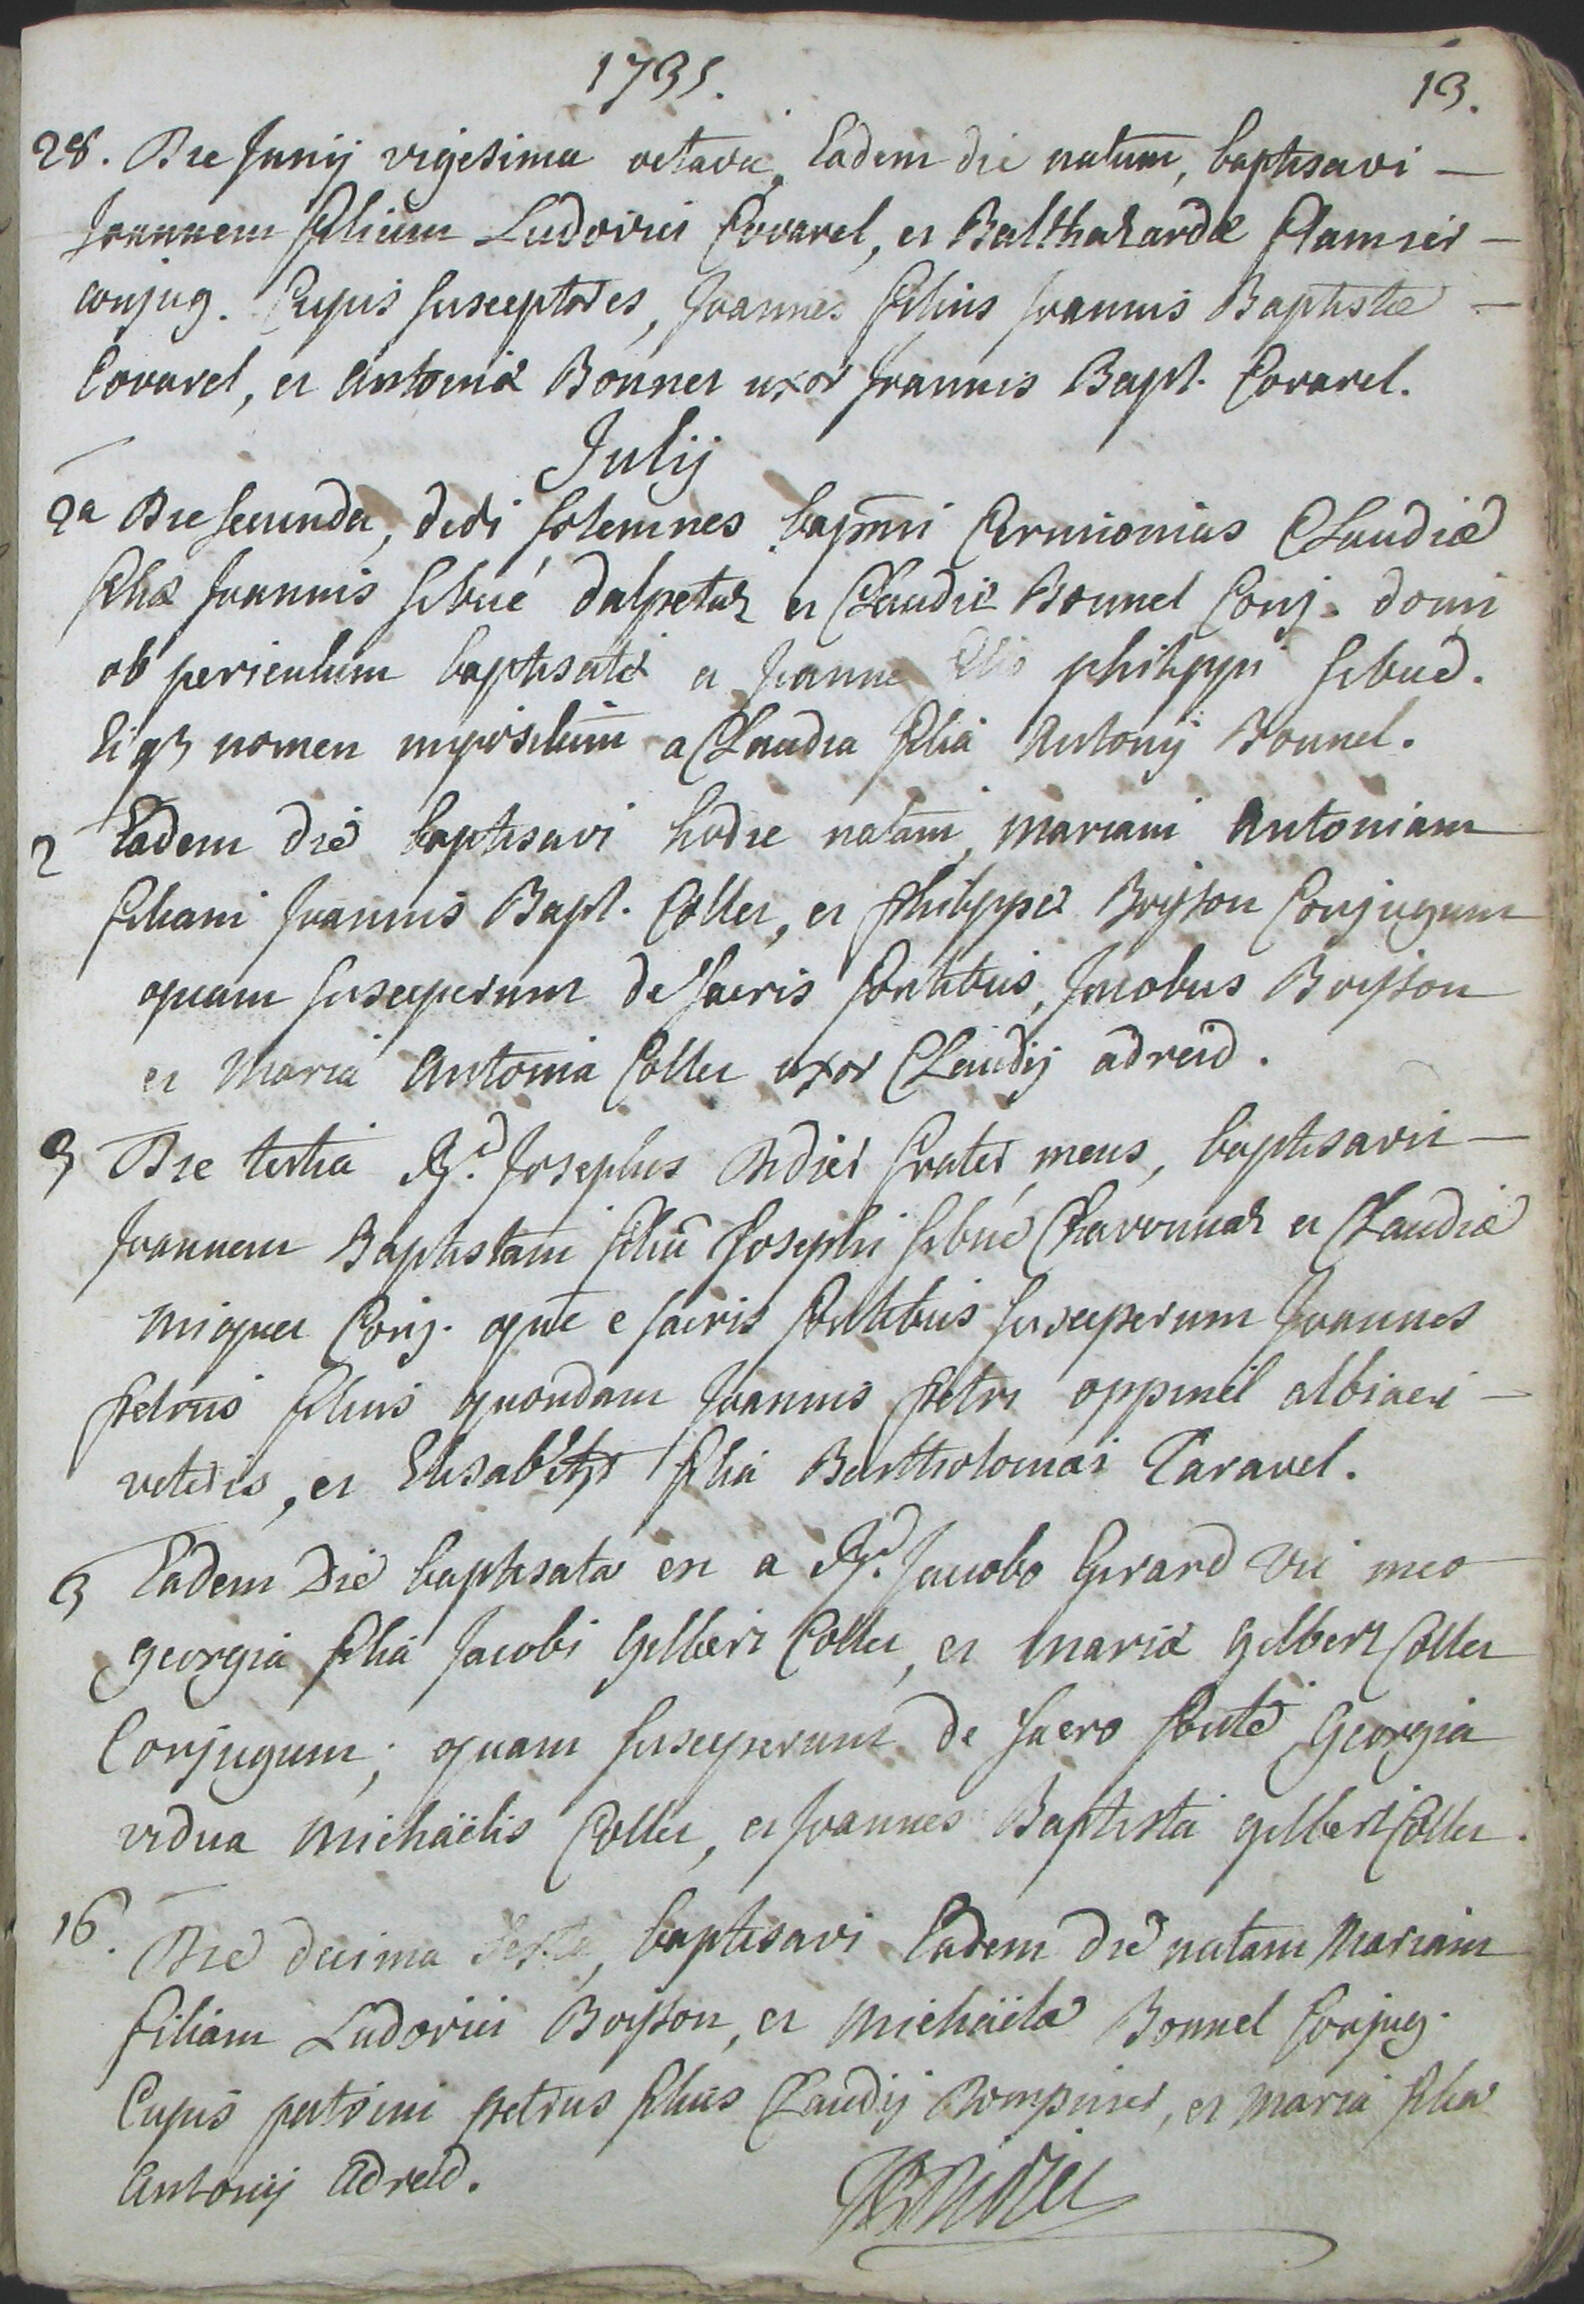 1735.
13.
28. Die Junij vigesima octava, Eadem die natum, baptisavi —
Joannem filium Ludovici Covarel, et Balthazardæ Flamier —
conjug. Cujus susceptores, Joannes filius Joannis Baptistæ —
Covarel, et Antonia Bonnet uxor Joannis Bapt. Covarel.
Julij
2a Die secunda, dedi solemnes bapmi Cærimonias Claudiæ
filiæ Joannis Sibué dalpetaz et Claudiæ Bonnel Conj. domi
ob periculum baptisatæ a Joanne philippi Sibué.
Eiq3 nomen impositum a Claudia filia Antonij Bonnel.
2 Eadem die baptisavi hodie natam, Mariam Antoniam
filiam Joannis Bapt. Collet, et philippæ Boisson Conjugum
quam susceperunt de sacris fontibus, Jacobus Boisson
et Maria Antonia Collet uxor Claudij adreid.
3 Die tertia Rd. Josephus Didier frater meus, baptisavit —
Joannem Baptistam filiū Josephi Sibué Charvonnaz et Claudiæ
Miquet Conj. quē e sacris fontibus susceperunt Joannes
petrus filius quondam Joannis petri oppinel albiaci —
veteris, et Elisabeth filia Bartholomæi Taravel.
3 Eadem Die baptisata est a Rd. Jacobo Girard vic meo
georgia filia Jacobi gilbert Collet, et Mariæ gilbert Collet
Conjugum; quam susceperunt de sacro fonte georgia
vidua Michaëlis Collet, et Joannes Baptista gilbert Collet.
16. Die decima sexta, baptisavi Eadem die natam Mariam
filiam Ludovici Boisson, et Michaëlæ Bonnel Conjug.
Cujus patrini petrus filius Claudij Rompinet, et Maria filia
Antonij Adreid.